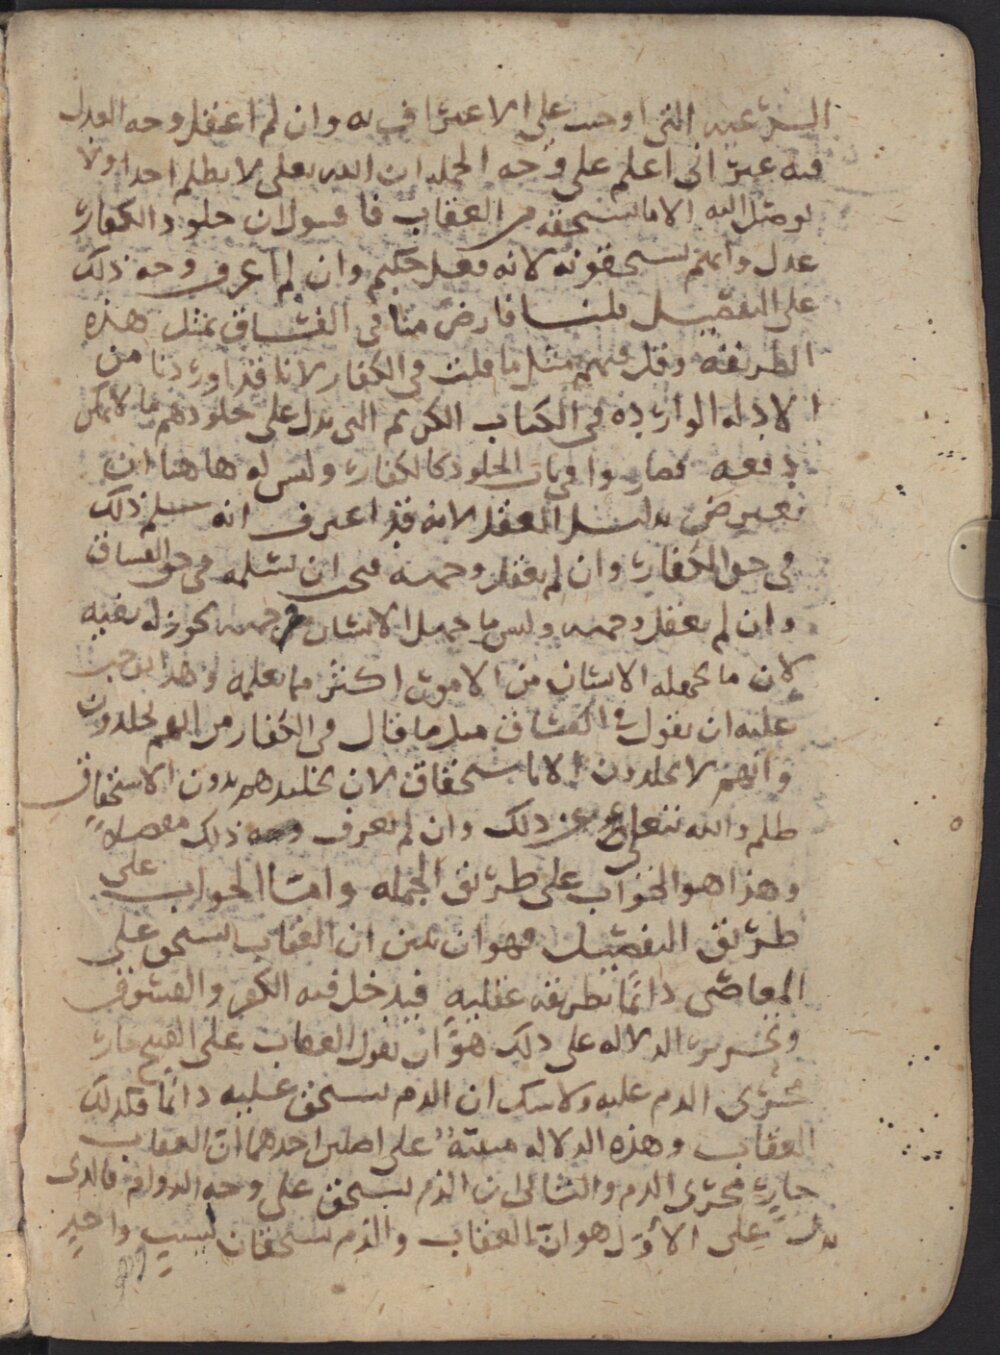 الشرعيه التي اوجبت علي الاعتراف به وان لم اعقل وجه العدل
فيه غير اني اعلم علي وجه الجمله ان الله تعلى لا يظلم احدا ولا
يوصل اليه الا ما يستحقه من العقاب فاقول ان خلود الكفار
عدل وانهم يستحقونه لانه فعل حكيم وان لم اعرف وجه ذلك
على التفصيل قلنا فارض منا في الفساق بمثل هذه
الطريقه وقل فيهم مثل ما قلت في الكفار لانا قد اوردنا من
الادله الوارده في الكتاب الكريم التي تدل على خلودهم ما لا يمكن
دفعه فصاروا في باب الخلود كالكفار وليس له هاهنا ان
يعترض بدليل العقل لانه قد اعترف انه سلم ذلك
في حق الكفار وان لم يعقل وجهه فيجب ان يسلمه في حق الفساق
وان لم يعقل وجهه وليس ما جهل الانسان وجهه يجوز له نفيه
لان ما يجهله الانسان من الامور اكثر مما يعلمه وهذا يوجب
عليه ان يقول في الفساق مثل ما قال في الكفار من انهم يخلدون
وانهم لا يخلدون الا باستحقاق لان تخليدهم بدون الاستحقاق
ظلم والله يتعالى عن ذلك وان لم نعرف وجه ذلك مفصلا
وهذا هو الجواب على طريق الجمله واما الجواب على
طريق التفصيل فهو ان نبين ان العقاب يستحق على
المعاصي دائما بطريقه عقليه فيدخل فيه الكفر والفسوق
وتحرير الدلاله على ذلك هو ان نقول العقاب على القبيح جار
مجرى الذم عليه ولا شك ان الذم يستحق عليه دائما فكذلك
العقاب وهذه الدلاله مبنيه على اصلين احدهما ان العقاب
جار مجرى الذم والثاني ان الذم يستحق على وجه الدوام فالذي
يدل على الاول هو ان العقاب والذم يستحقان لسبب واحد